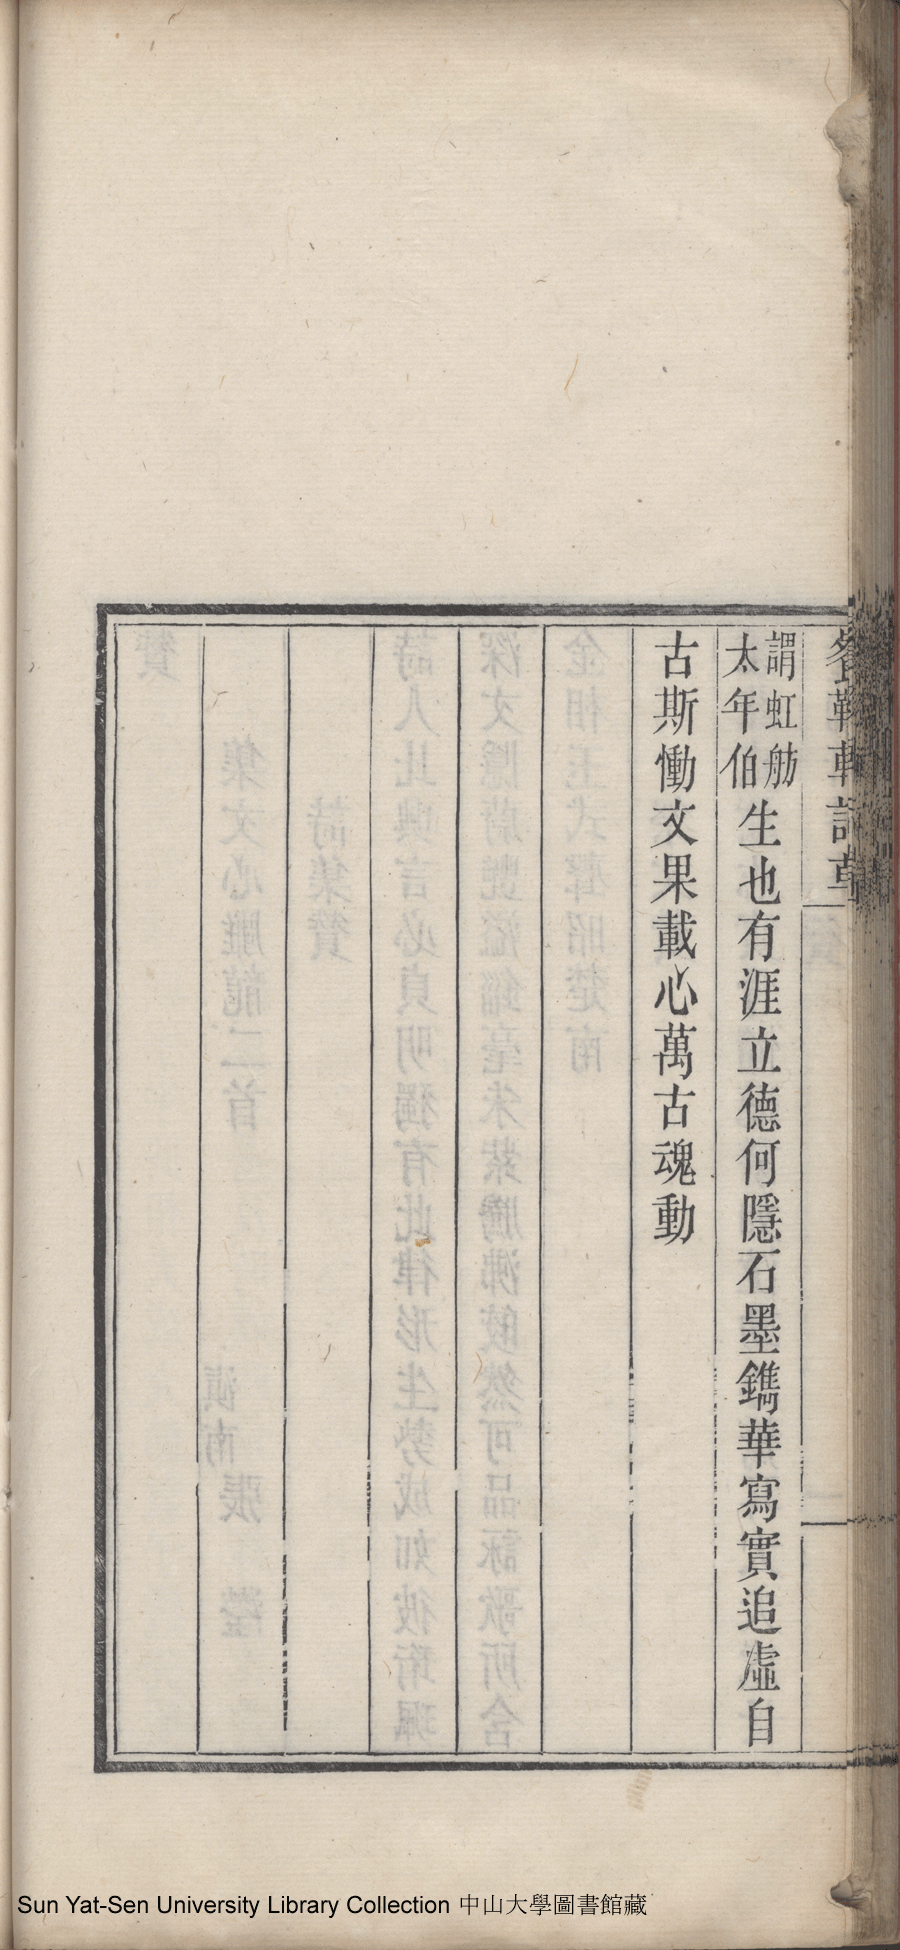 謂虹舫
太年伯
生也有涯立德何隱石墨鐫華寫實追虛自
古斯慟文果載心萬古魂動
Sun Yat-Sen University Library Collection 中山大學圖書館藏